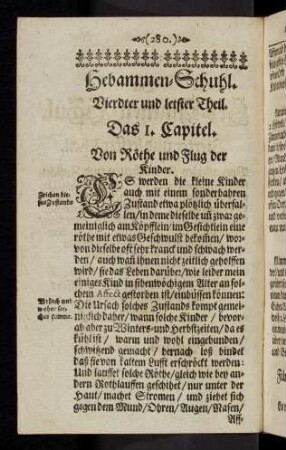 (280.)
Hebammen-Schuhl.
Vierdter und letster Theil.
Das 1. Capitel.
Von Röthe und Flug der
Kinder.
Zeichen die-
ses Zustands
ES werden die kleine Kinder
auch mit einem sonderbahren
Zustand etwa plötzlich überfal-
len / in deme dieselbe uñ zwar ge-
meiniglich am Köpfflein / im Gesichtlein eine
röthe mit etwas Geschwulst bekom̃en / wor-
von dieselbe offt sehr kranck und schwach wer-
den / auch wañ ihnen nicht zeitlich geholffen
wird / sie das Leben darüber / wie leider mein
einiges Kind in sibenwöchigem Alter an sol-
chem Affect gestorben ist / einbüssen können:
Ursach und
woher sol-
cher komme.
Die Ursach solches Zustands kompt gemei-
niglich daher / wann solche Kinder / bevor-
ab aber zu Winters- und Herbstzeiten / da es
kühl ist / warm und wohl eingebunden /
schwitzend gemacht / hernach loß bindet
daß sie von kalten Lufft erschröckt werden:
Und lauffet solche Röthe / gleich wie bey an-
dern Rothlauffen geschihet / nur unter der
Haut / machet Stromen / und ziehet sich
gegen dem Mund / Ohren / Augen / Nasen /
Aff-